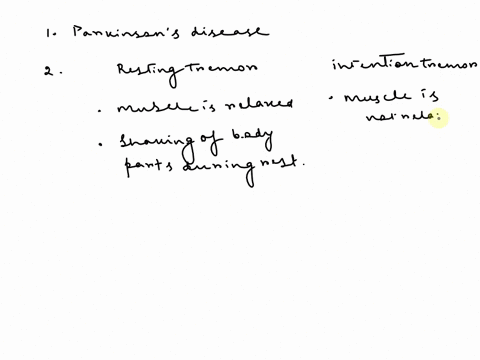 1. Parkinson's disease
2. Resting tremor intention tremor
• muscle is relaxed • muscle is
not rela
• Shaking of body
parts during rest.